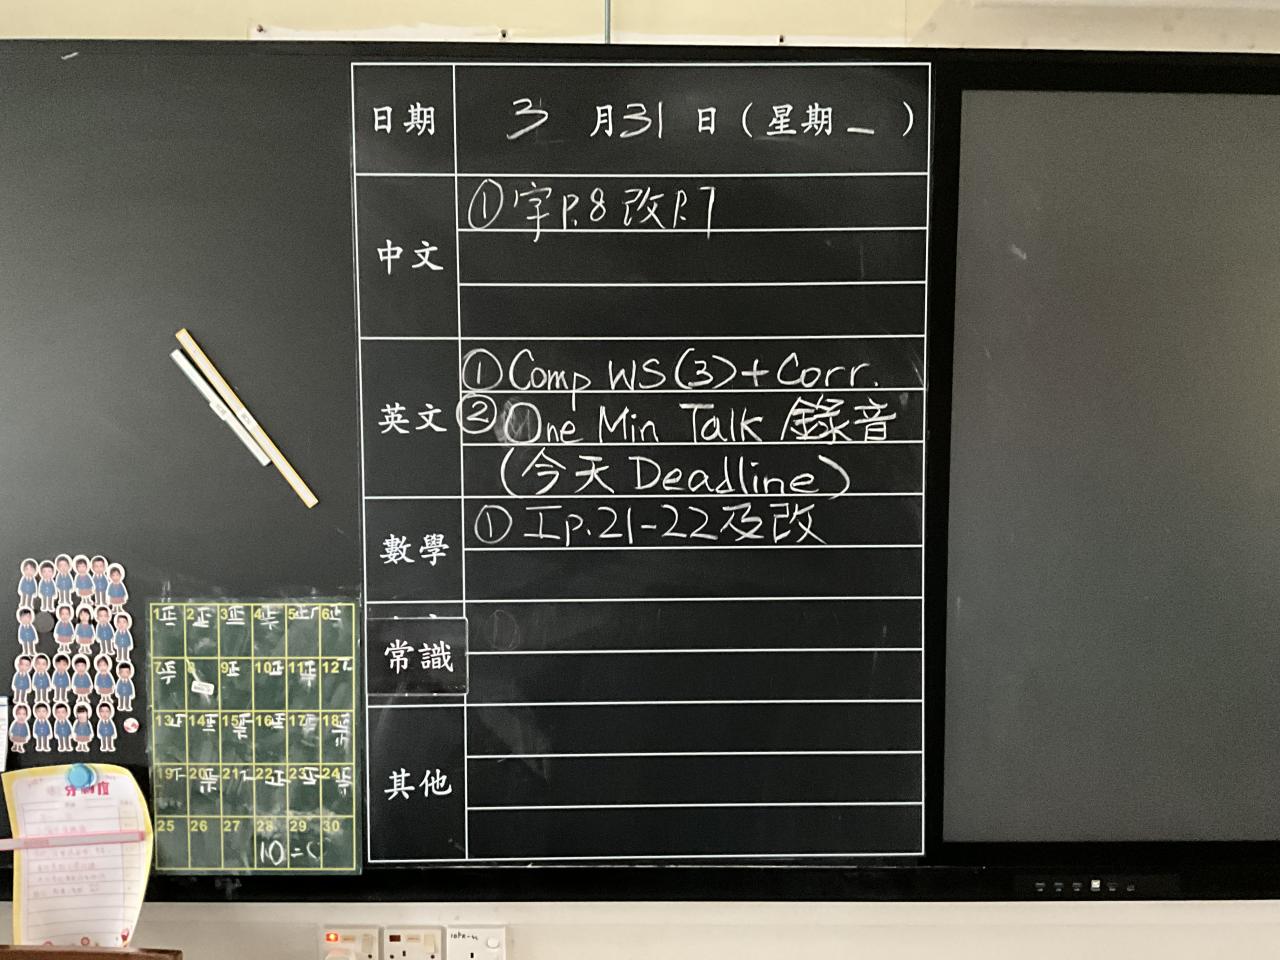 日期 3月31日(星期一)
中文 ①字P.8 改P.7
英文 ①Comp WS(3)+Corr.
②One Min Talk 錄音
(今天 Deadline)
數學 ①工p.21-22及改
常識 ①
其他
1正 2正 3正 4正 5正 6正
7正 8 9正 10正 11正 12
13正 14正 15正 16正 17正 18正
19 20正 21 22正 23正 24正
25 26 27 28 29 30
10=(